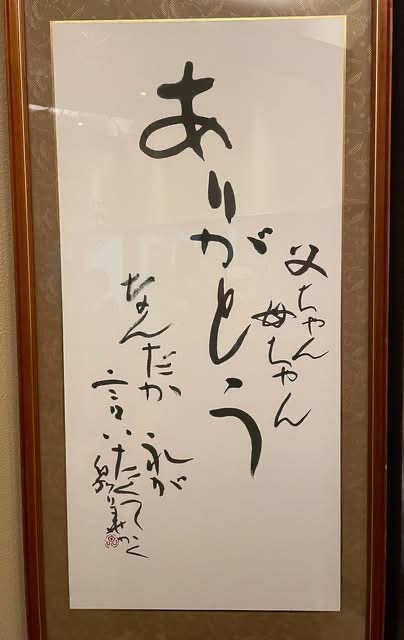 父ちゃん
母ちゃん
ありがとう
なんだか
礼が
言いたくて